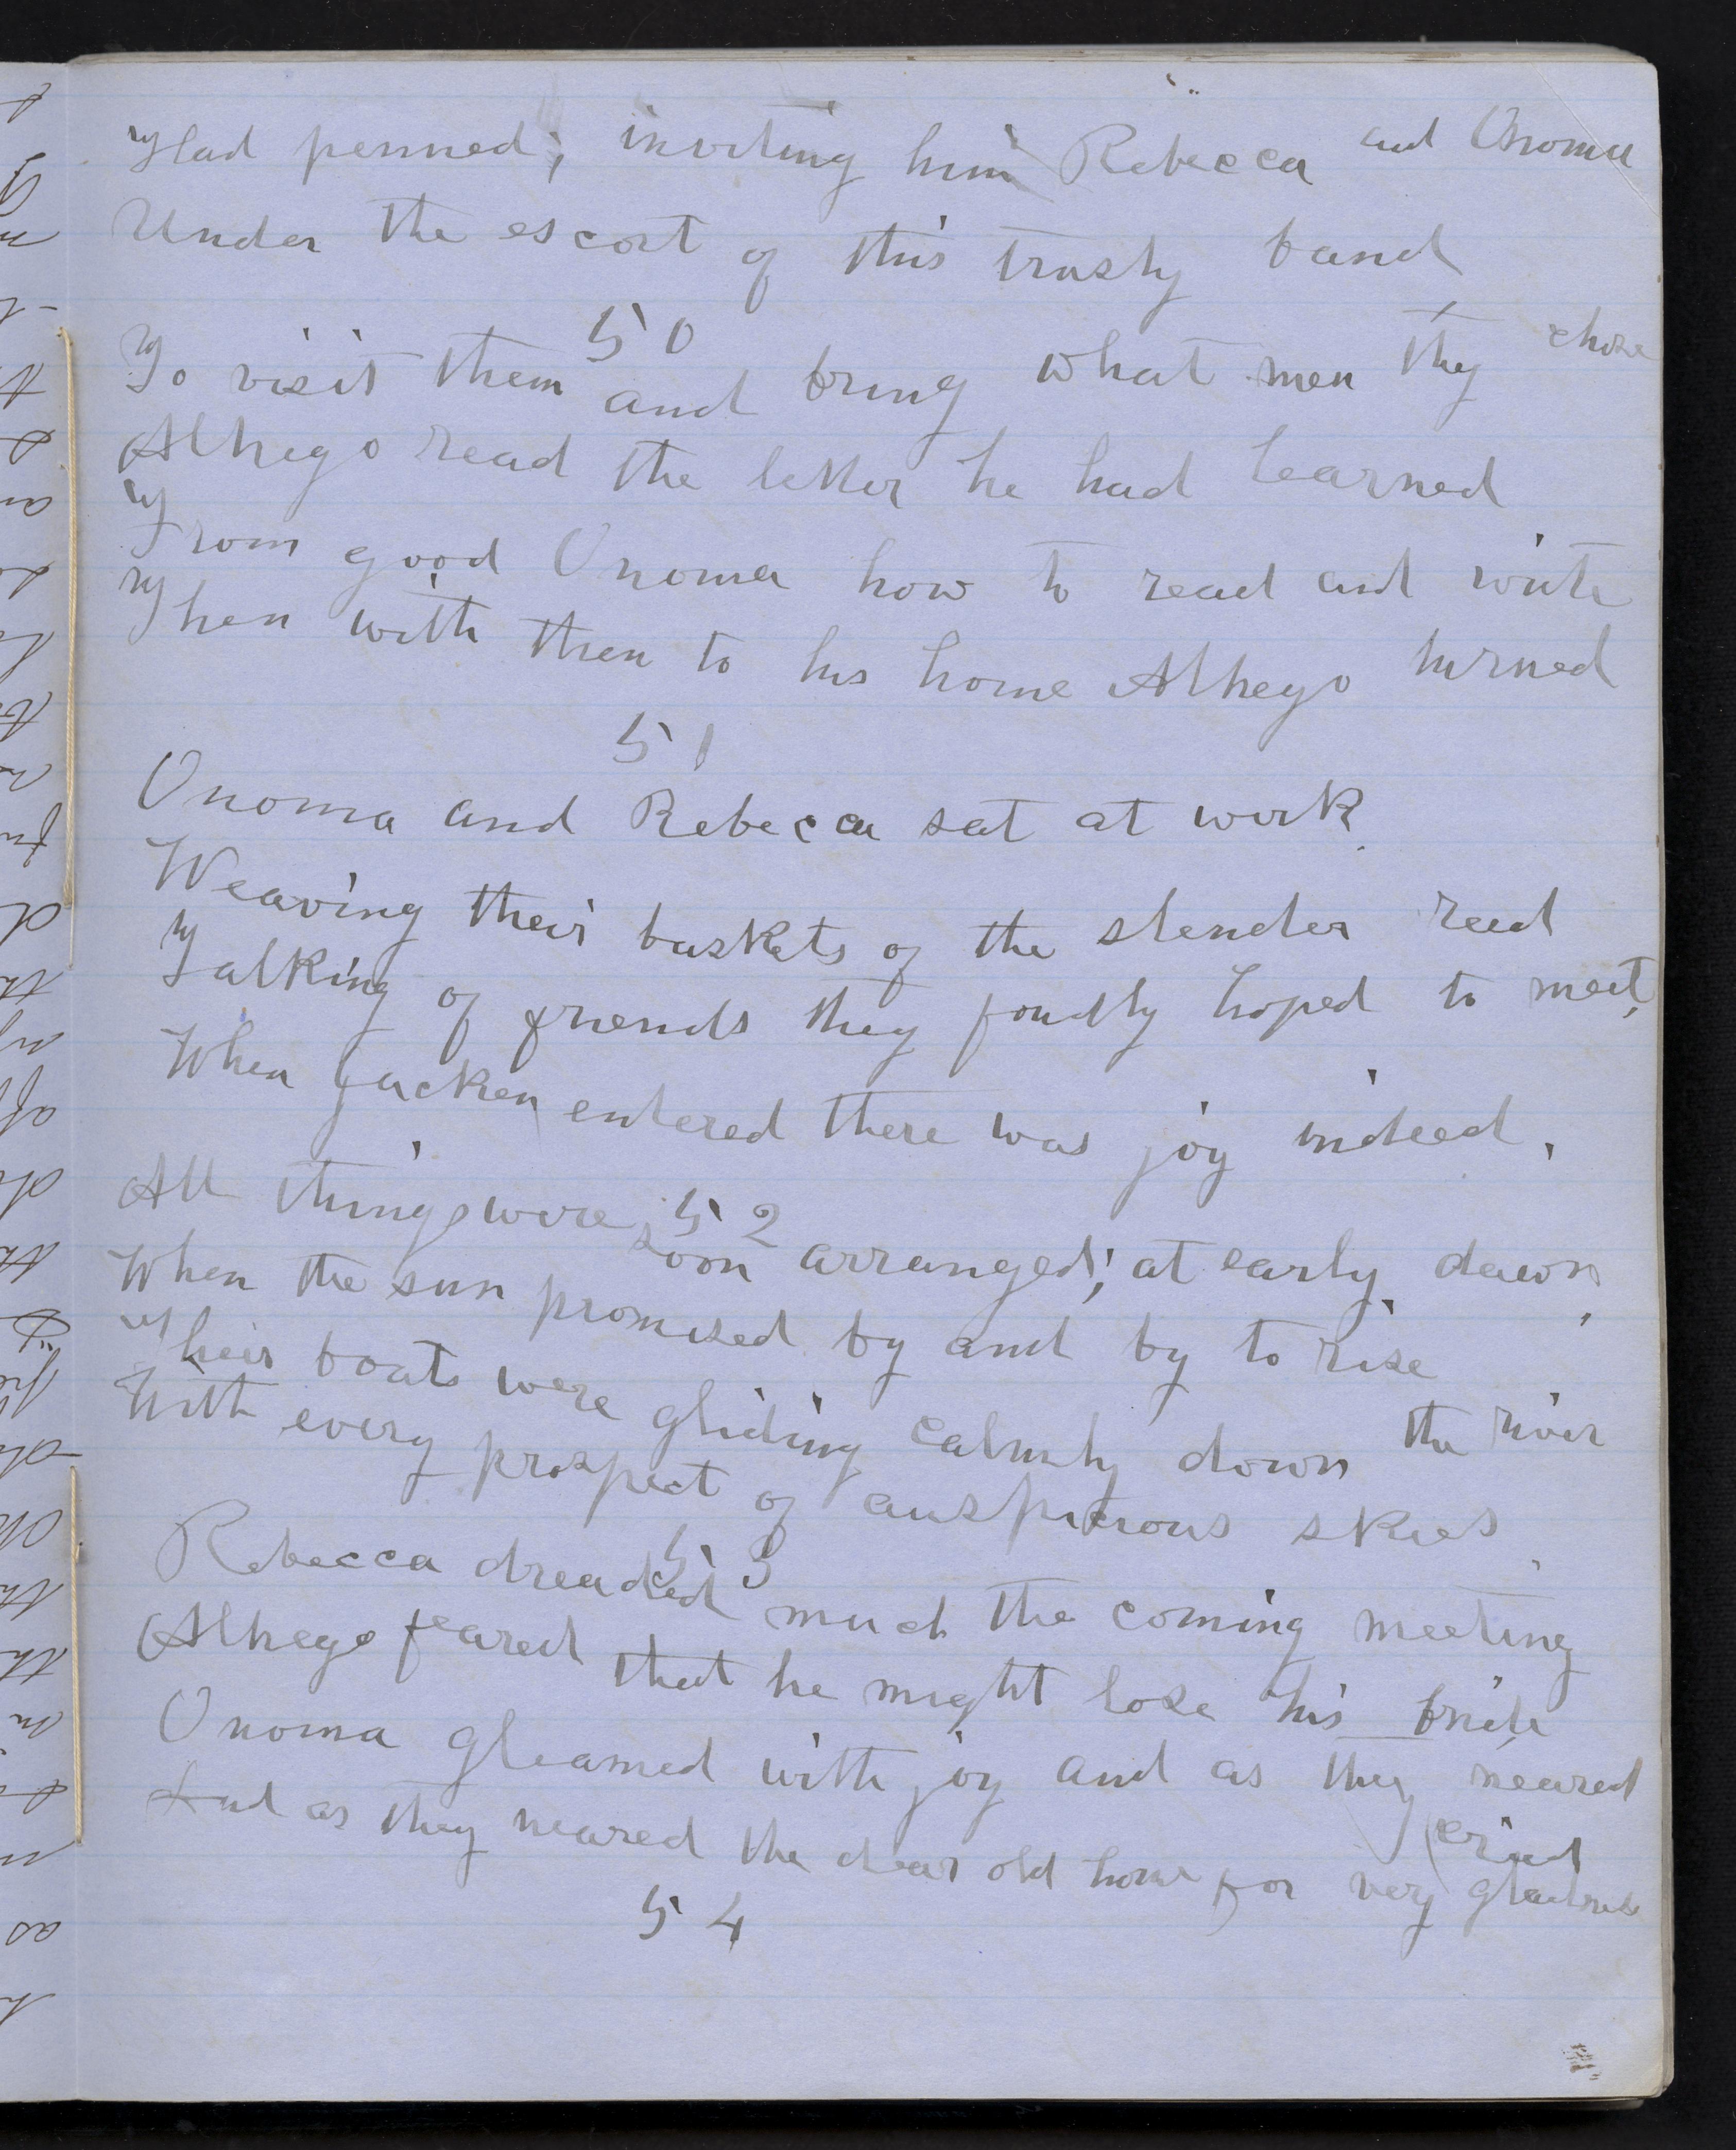 Had penned; inviting him Rebecca and Onoma
Under the escort of this trusty band
50
To visit them and bring what men they chose
Alhego read the letter he had learned
From good Onoma how to read and write
Then with them to his home Alhego turned
51
Onoma and Rebecca sat at work
Weaving their baskets of the slender reed
Talking of friends they fondly hoped to meet,
When Jucken entered there was joy indeed.
52
All things were soon arranged; at early dawn
When the sun promised by and by to rise,
Their boats were gliding calmly down the river
With every prospect of auspicious skies.
53
Rebecca dreaded much the coming meeting
Alhego feared that he might lose his bride
Onoma gleamed with joy and as they neared
And as they neared the dear old home for very gladness
(cried
54